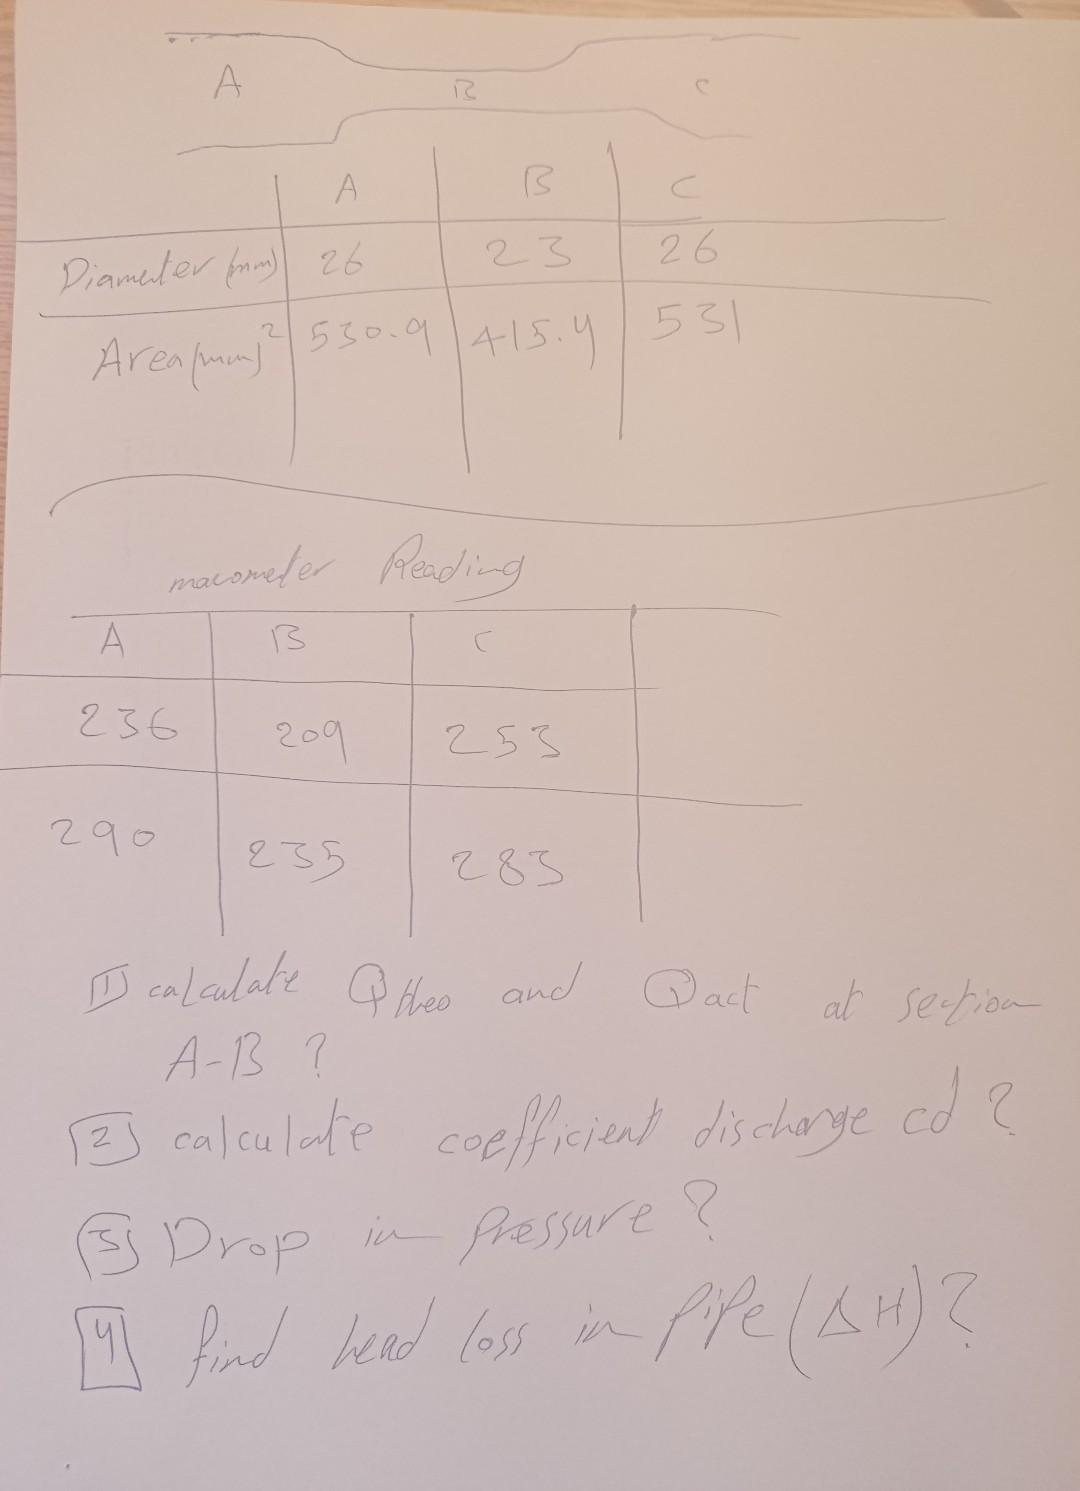 A B C
A B C
Diameter (mm) 26 23 26
Area (mm)² 530.9 415.4 531
manometer Reading
A B C
236 209 253
290 235 283
1 calculate Q theo and Q act at section
A-B ?
2 calculate coefficient discharge cd ?
3 Drop in Pressure ?
4 find head loss in PiPe (ΔH) ?